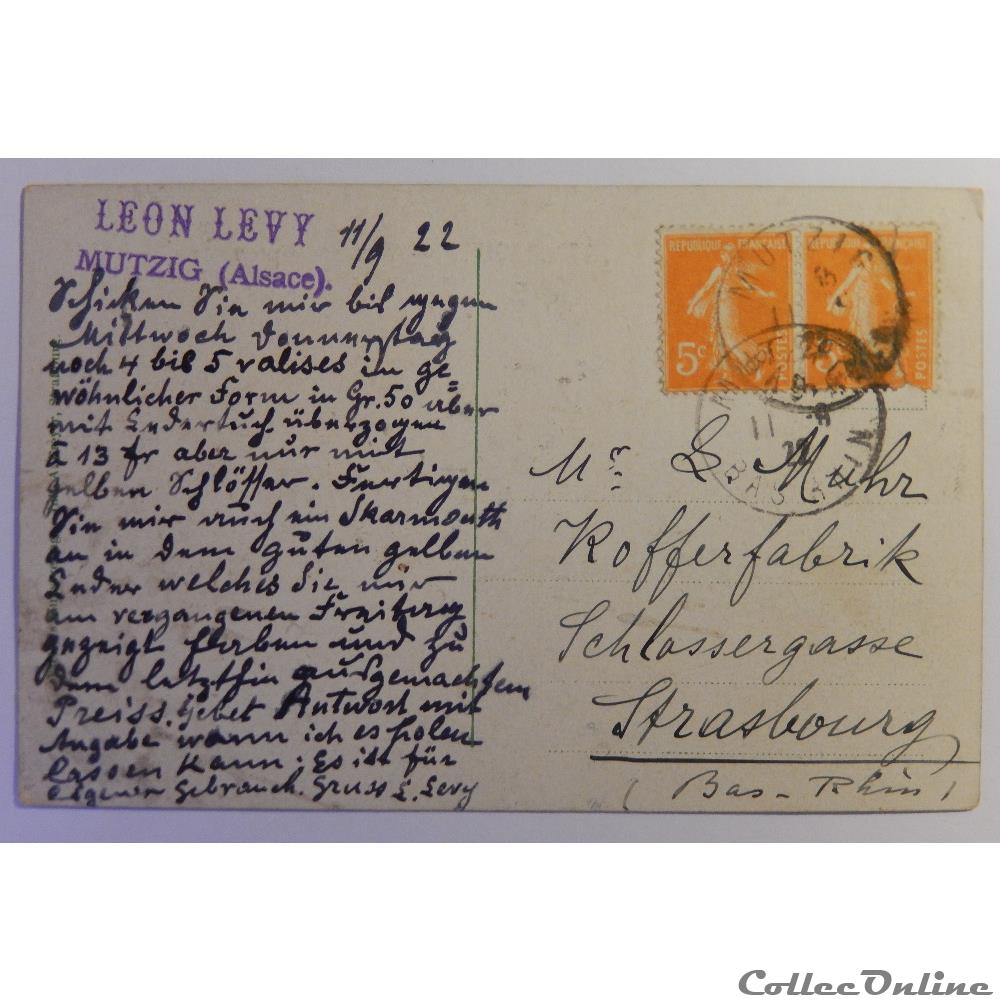 LEON LEVY
MUTZIG (Alsace).
11/9 22
Schicken Sie mir bis gegen
Mittwoch Donnerstag
noch 4 bis 5 valises in ge=
wöhnlicher Form in Gr. 50 aber
mit Ledertuch überzogen
à 13 fr aber nur mit
gelben Schlösser. Fertigen
Sie mir auch ein
an in dem guten gelben
Leder welches Sie mir
am vergangenen Freitag
gezeigt haben und zu
dem letzthin ausgemachtem
Preiss. Gebet Antwort mit
Angabe wann ich es holen
lassen kann. Es ist für
eigener Gebrauch. Gruss L. Levy
REPUBLIQUE FRANÇAISE
5c
POSTES
REPUBLIQUE FRANÇAISE
5c
POSTES
MUTZIG
11
BAS RHIN
Mr L Muhr
Kofferfabrik
Schlossergasse
Strasbourg
(Bas-Rhin)
CollecOnline